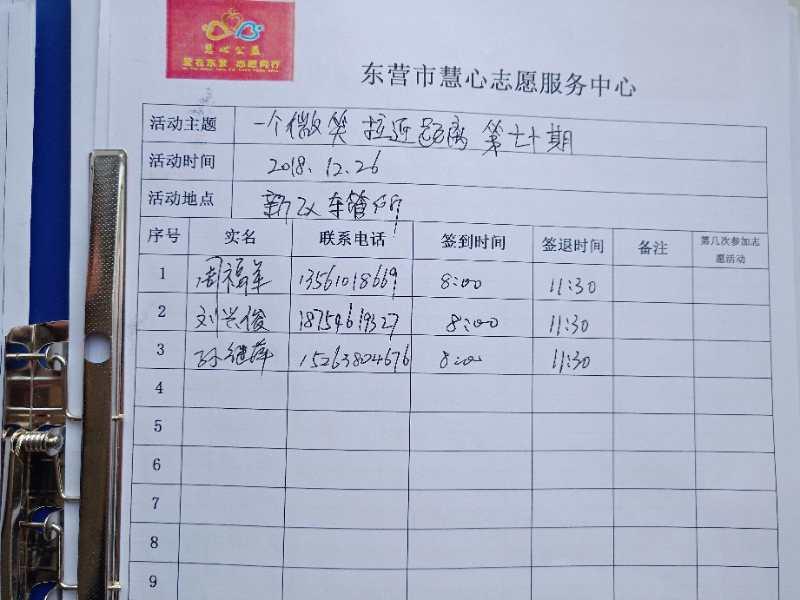 慧心公益
爱在东营 志愿同行
东营市慧心志愿服务中心
活动主题 一个微笑 拉近距离 第七十期
活动时间 2018.12.26
活动地点 新区车管所
序号 实名 联系电话 签到时间 签退时间 备注 第几次参加志愿活动
1 周福军 13561018669 8:00 11:30
2 刘兴俊 18754619327 8:00 11:30
3 孙继萍 15263804676 8:00 11:30
4
5
6
7
8
9